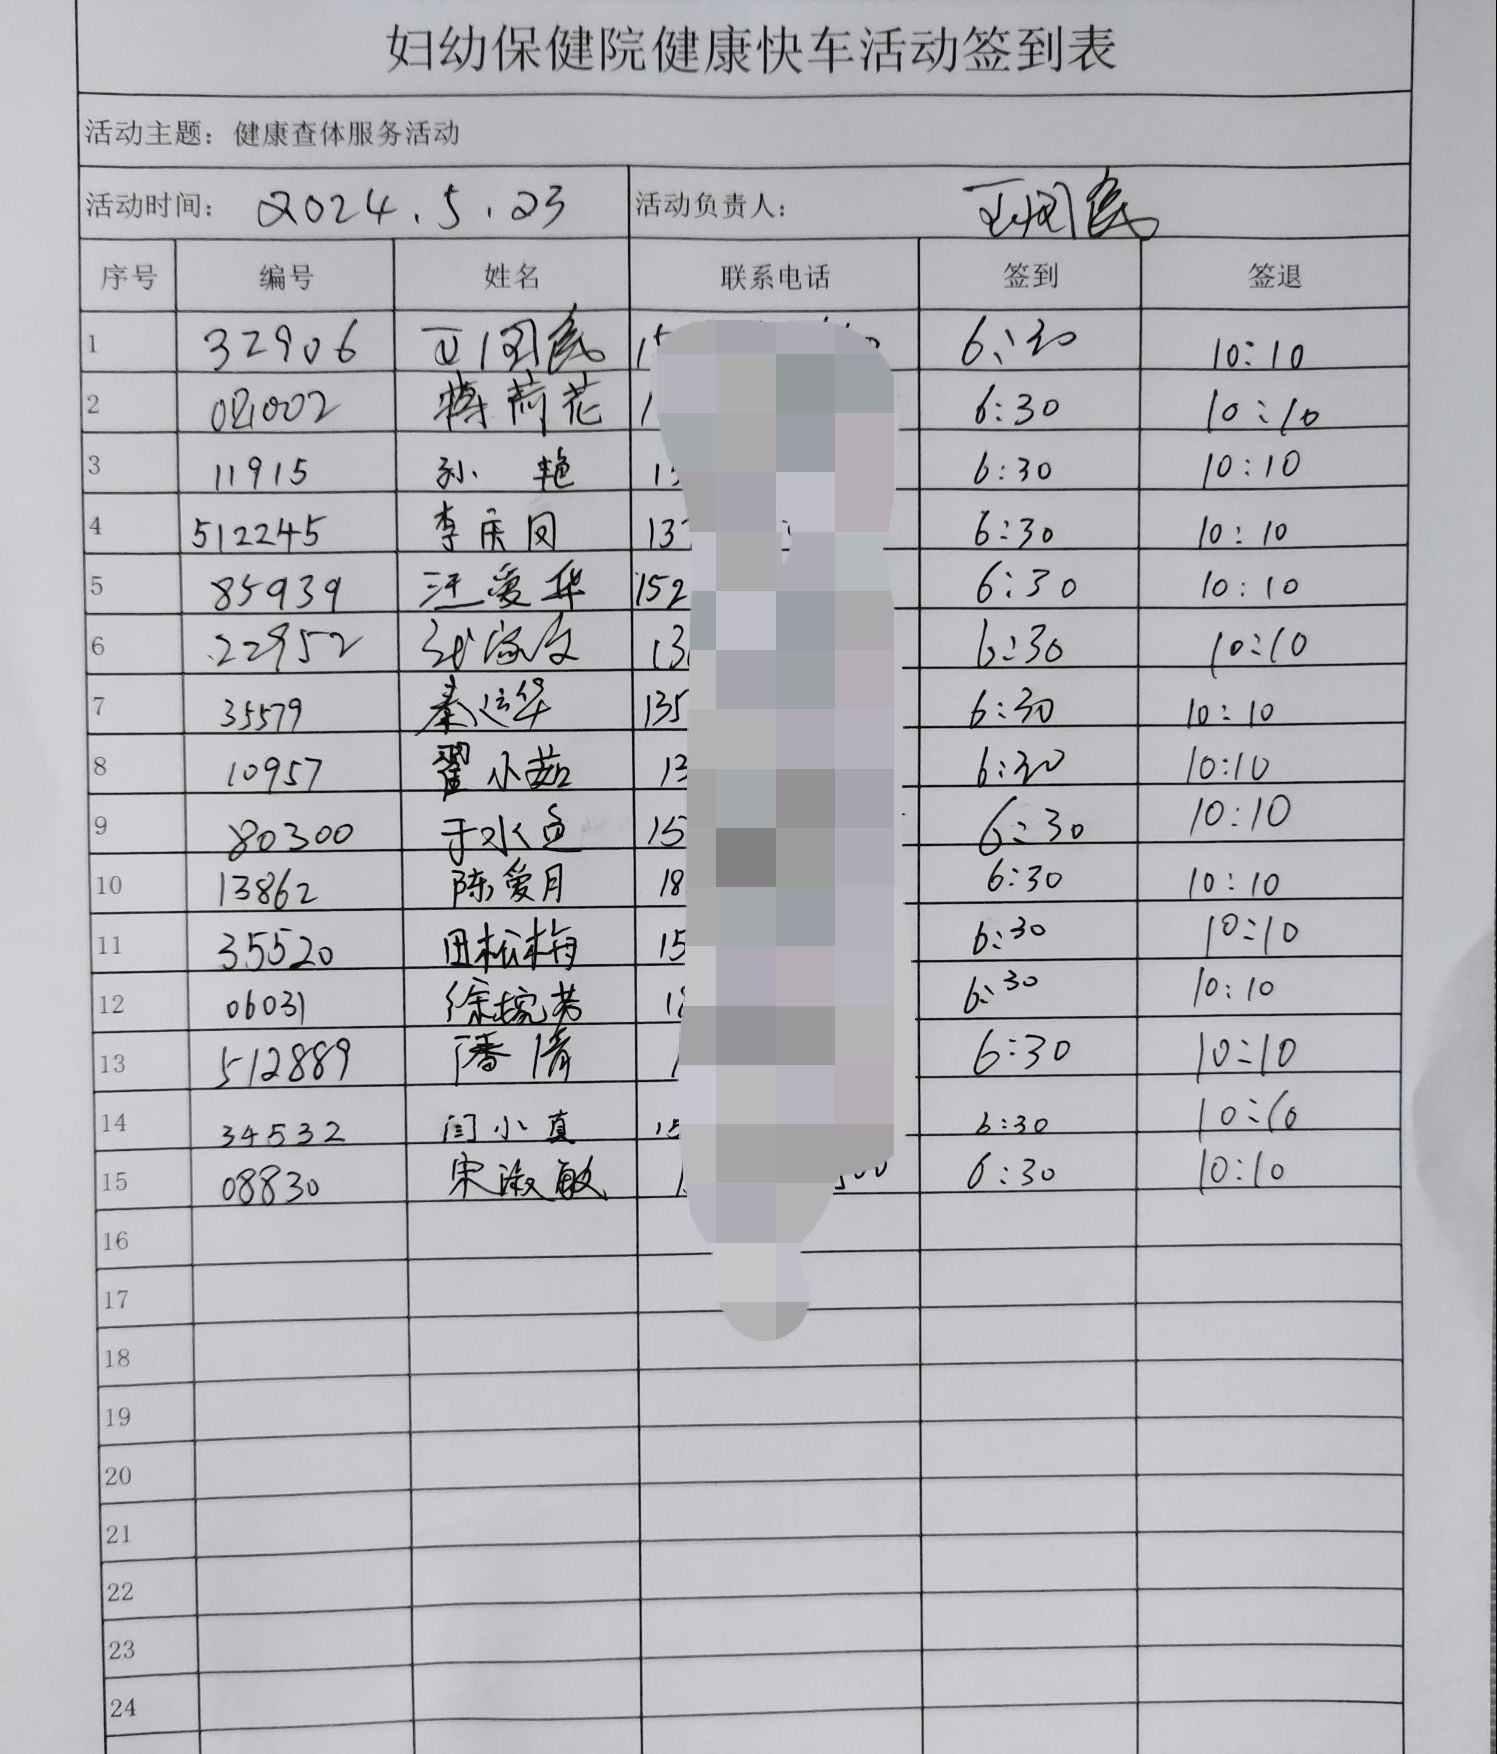 妇幼保健院健康快车活动签到表
活动主题：健康查体服务活动
活动时间： 2024.5.23 活动负责人：
序号 编号 姓名 联系电话 签到 签退
1 32906 6:30 10:10
2 荷花 6:30 10:10
3 11915 孙艳 6:30 10:10
4 512245 李庆凤 137 6:30 10:10
5 85939 汪爱华 152 6:30 10:10
6 22952 6:30 10:10
7 35579 秦运华 135 6:30 10:10
8 10957 翟小茹 13 6:30 10:10
9 80300 于水鱼 15 6:30 10:10
10 13862 陈爱月 18 6:30 10:10
11 35520 田松梅 15 6:30 10:10
12 06031 徐婉芳 6:30 10:10
13 512889 潘倩 6:30 10:10
14 34532 闫小真 15 6:30 10:10
15 08830 宋淑敏 6:30 10:10
16
17
18
19
20
21
22
23
24